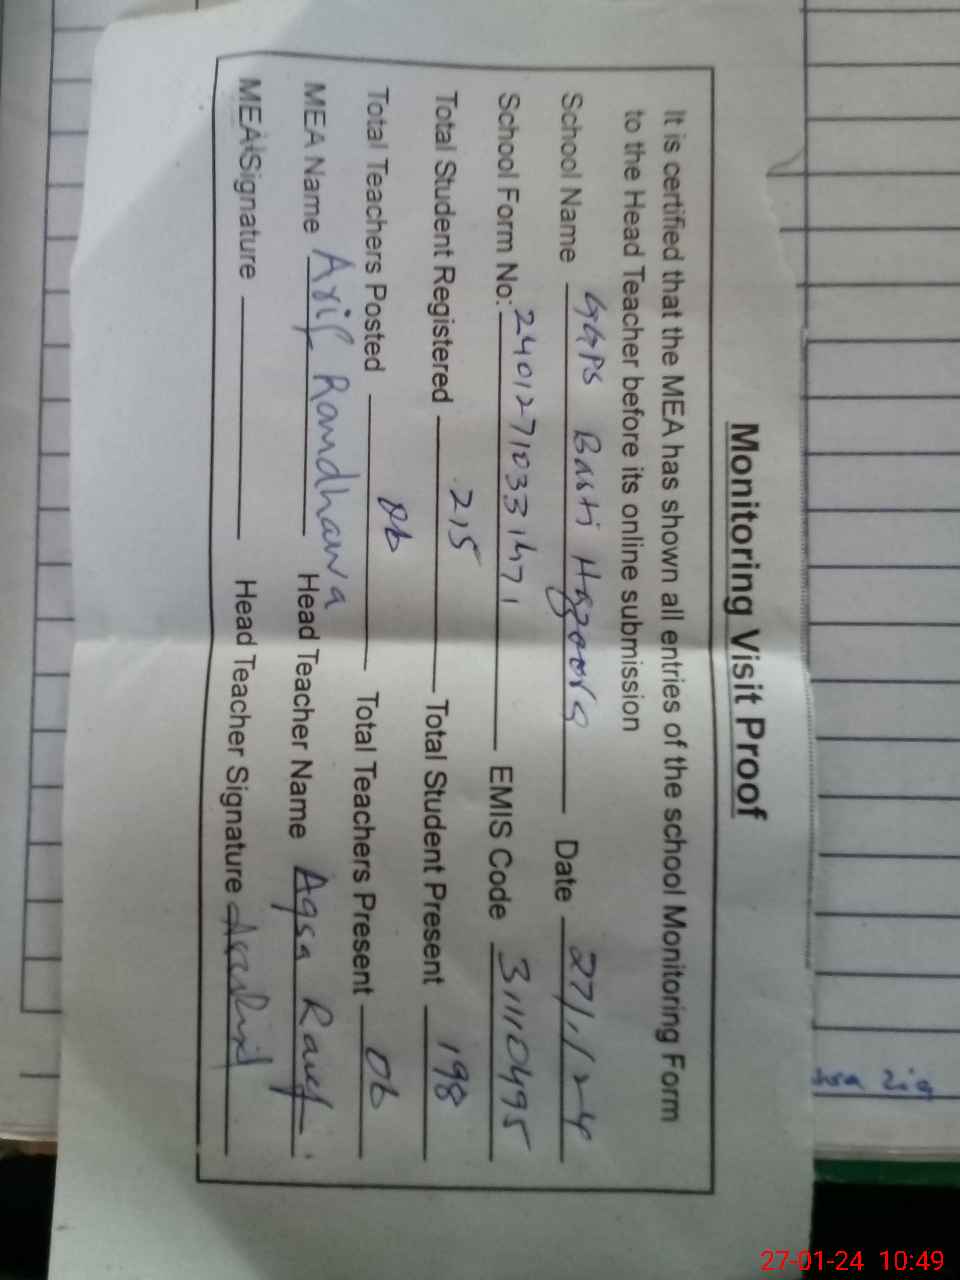 Monitoring Visit Proof
It is certified that the MEA has shown all entries of the school Monitoring Form
to the Head Teacher before its online submission
School Name GGPS Basti Hazoora Date 27/1/24
School Form No: 24012710331471 EMIS Code 31110495
Total Student Registered 215 Total Student Present 198
Total Teachers Posted 06 Total Teachers Present 06
MEA Name Arif Randhawa Head Teacher Name Aqsa Rauf
MEA Signature Head Teacher Signature
27-01-24 10:49